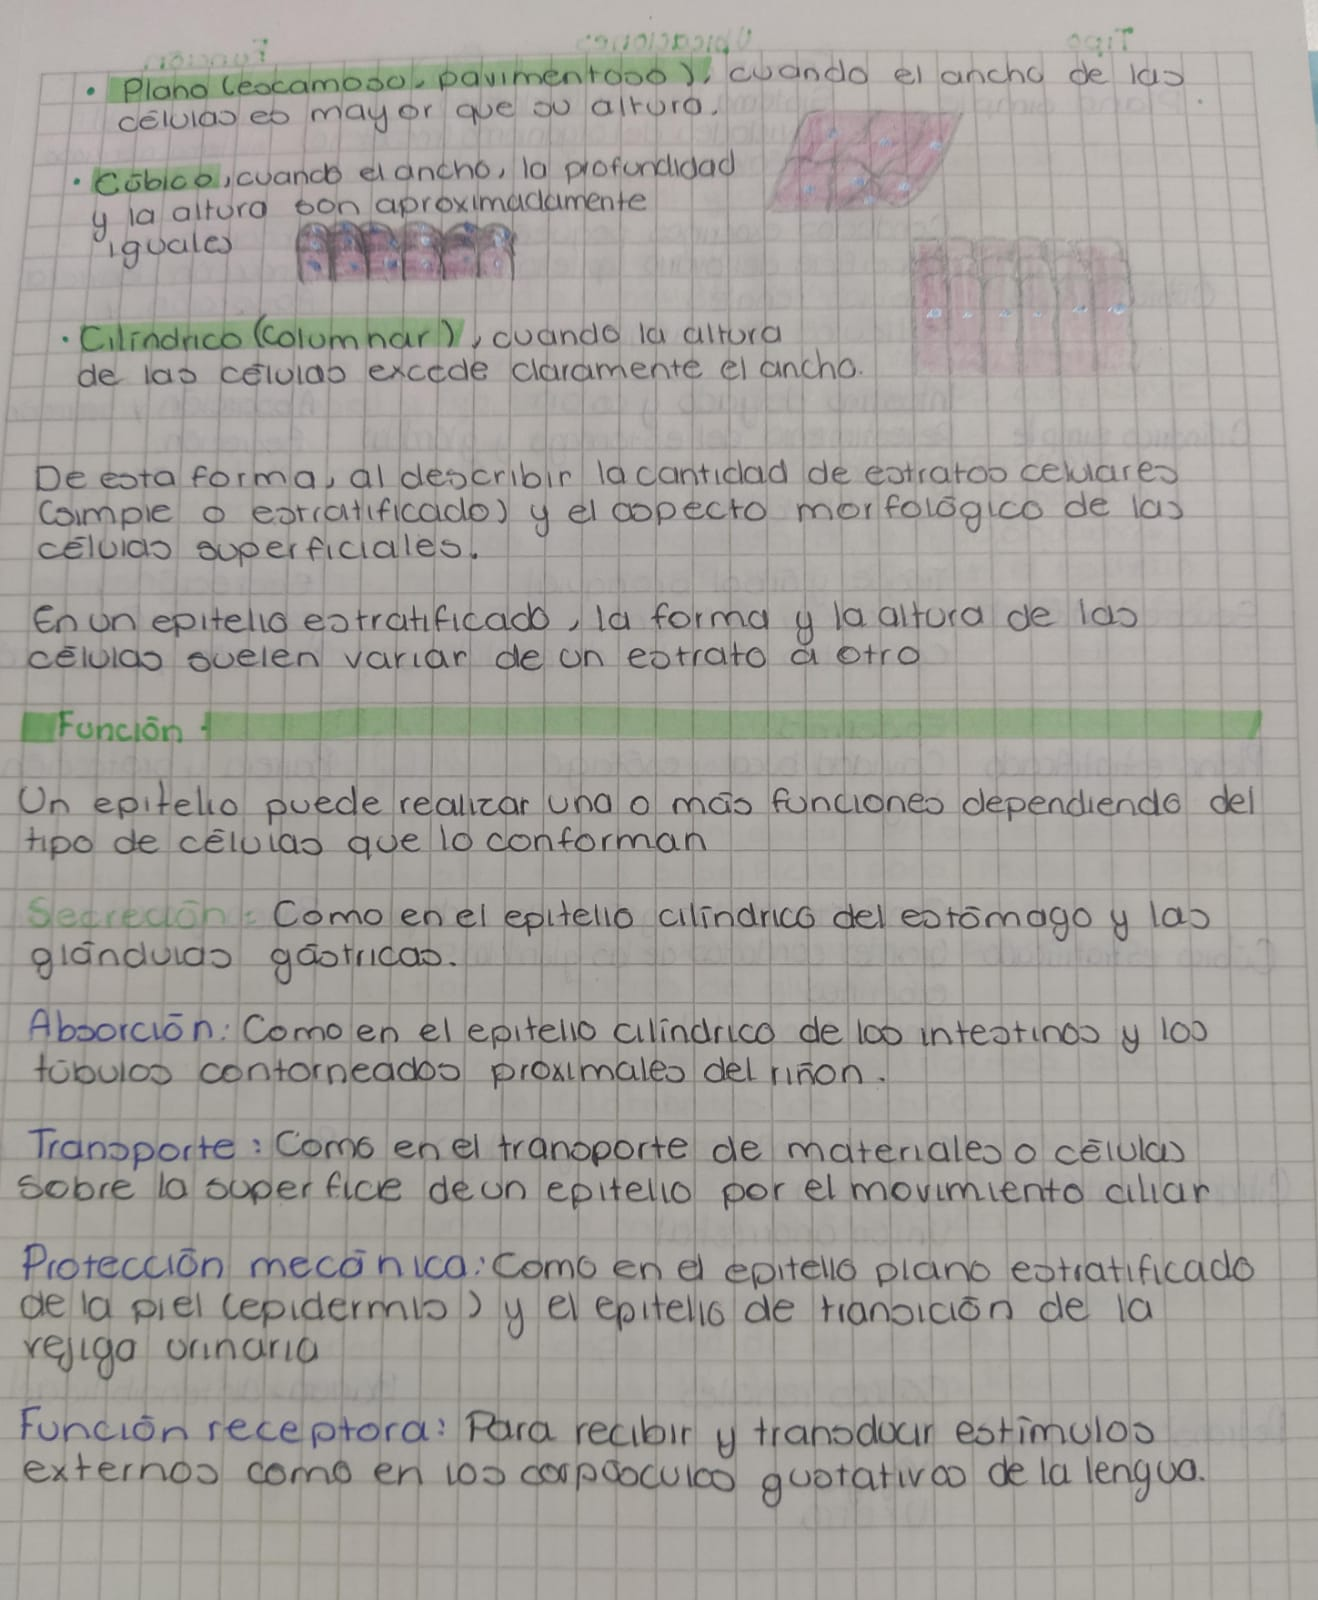 • Plano (escamoso, pavimentoso), cuando el ancho de las
células es mayor que su altura.
• Cúbico, cuando el ancho, la profundidad
y la altura son aproximadamente
iguales
• Cilíndrico (Columnar), cuando la altura
de las células excede claramente el ancho.
De esta forma, al describir la cantidad de estratos celulares
(simple o estratificado) y el aspecto morfológico de las
células superficiales.
En un epitelio estratificado, la forma y la altura de las
células suelen variar de un estrato a otro
Función
Un epitelio puede realizar una o más funciones dependiendo del
tipo de células que lo conforman
Secreción: Como en el epitelio cilíndrico del estómago y las
glándulas gástricas.
Absorción: Como en el epitelio cilíndrico de los intestinos y los
túbulos contorneados proximales del riñon.
Transporte: Como en el transporte de materiales o células
sobre la superficie de un epitelio por el movimiento ciliar
Protección mecánica: Como en el epitelio plano estratificado
de la piel (epidermis) y el epitelio de transición de la
vejiga urinaria
Función receptora: Para recibir y transducir estímulos
externos como en los corpúsculos gustativos de la lengua.